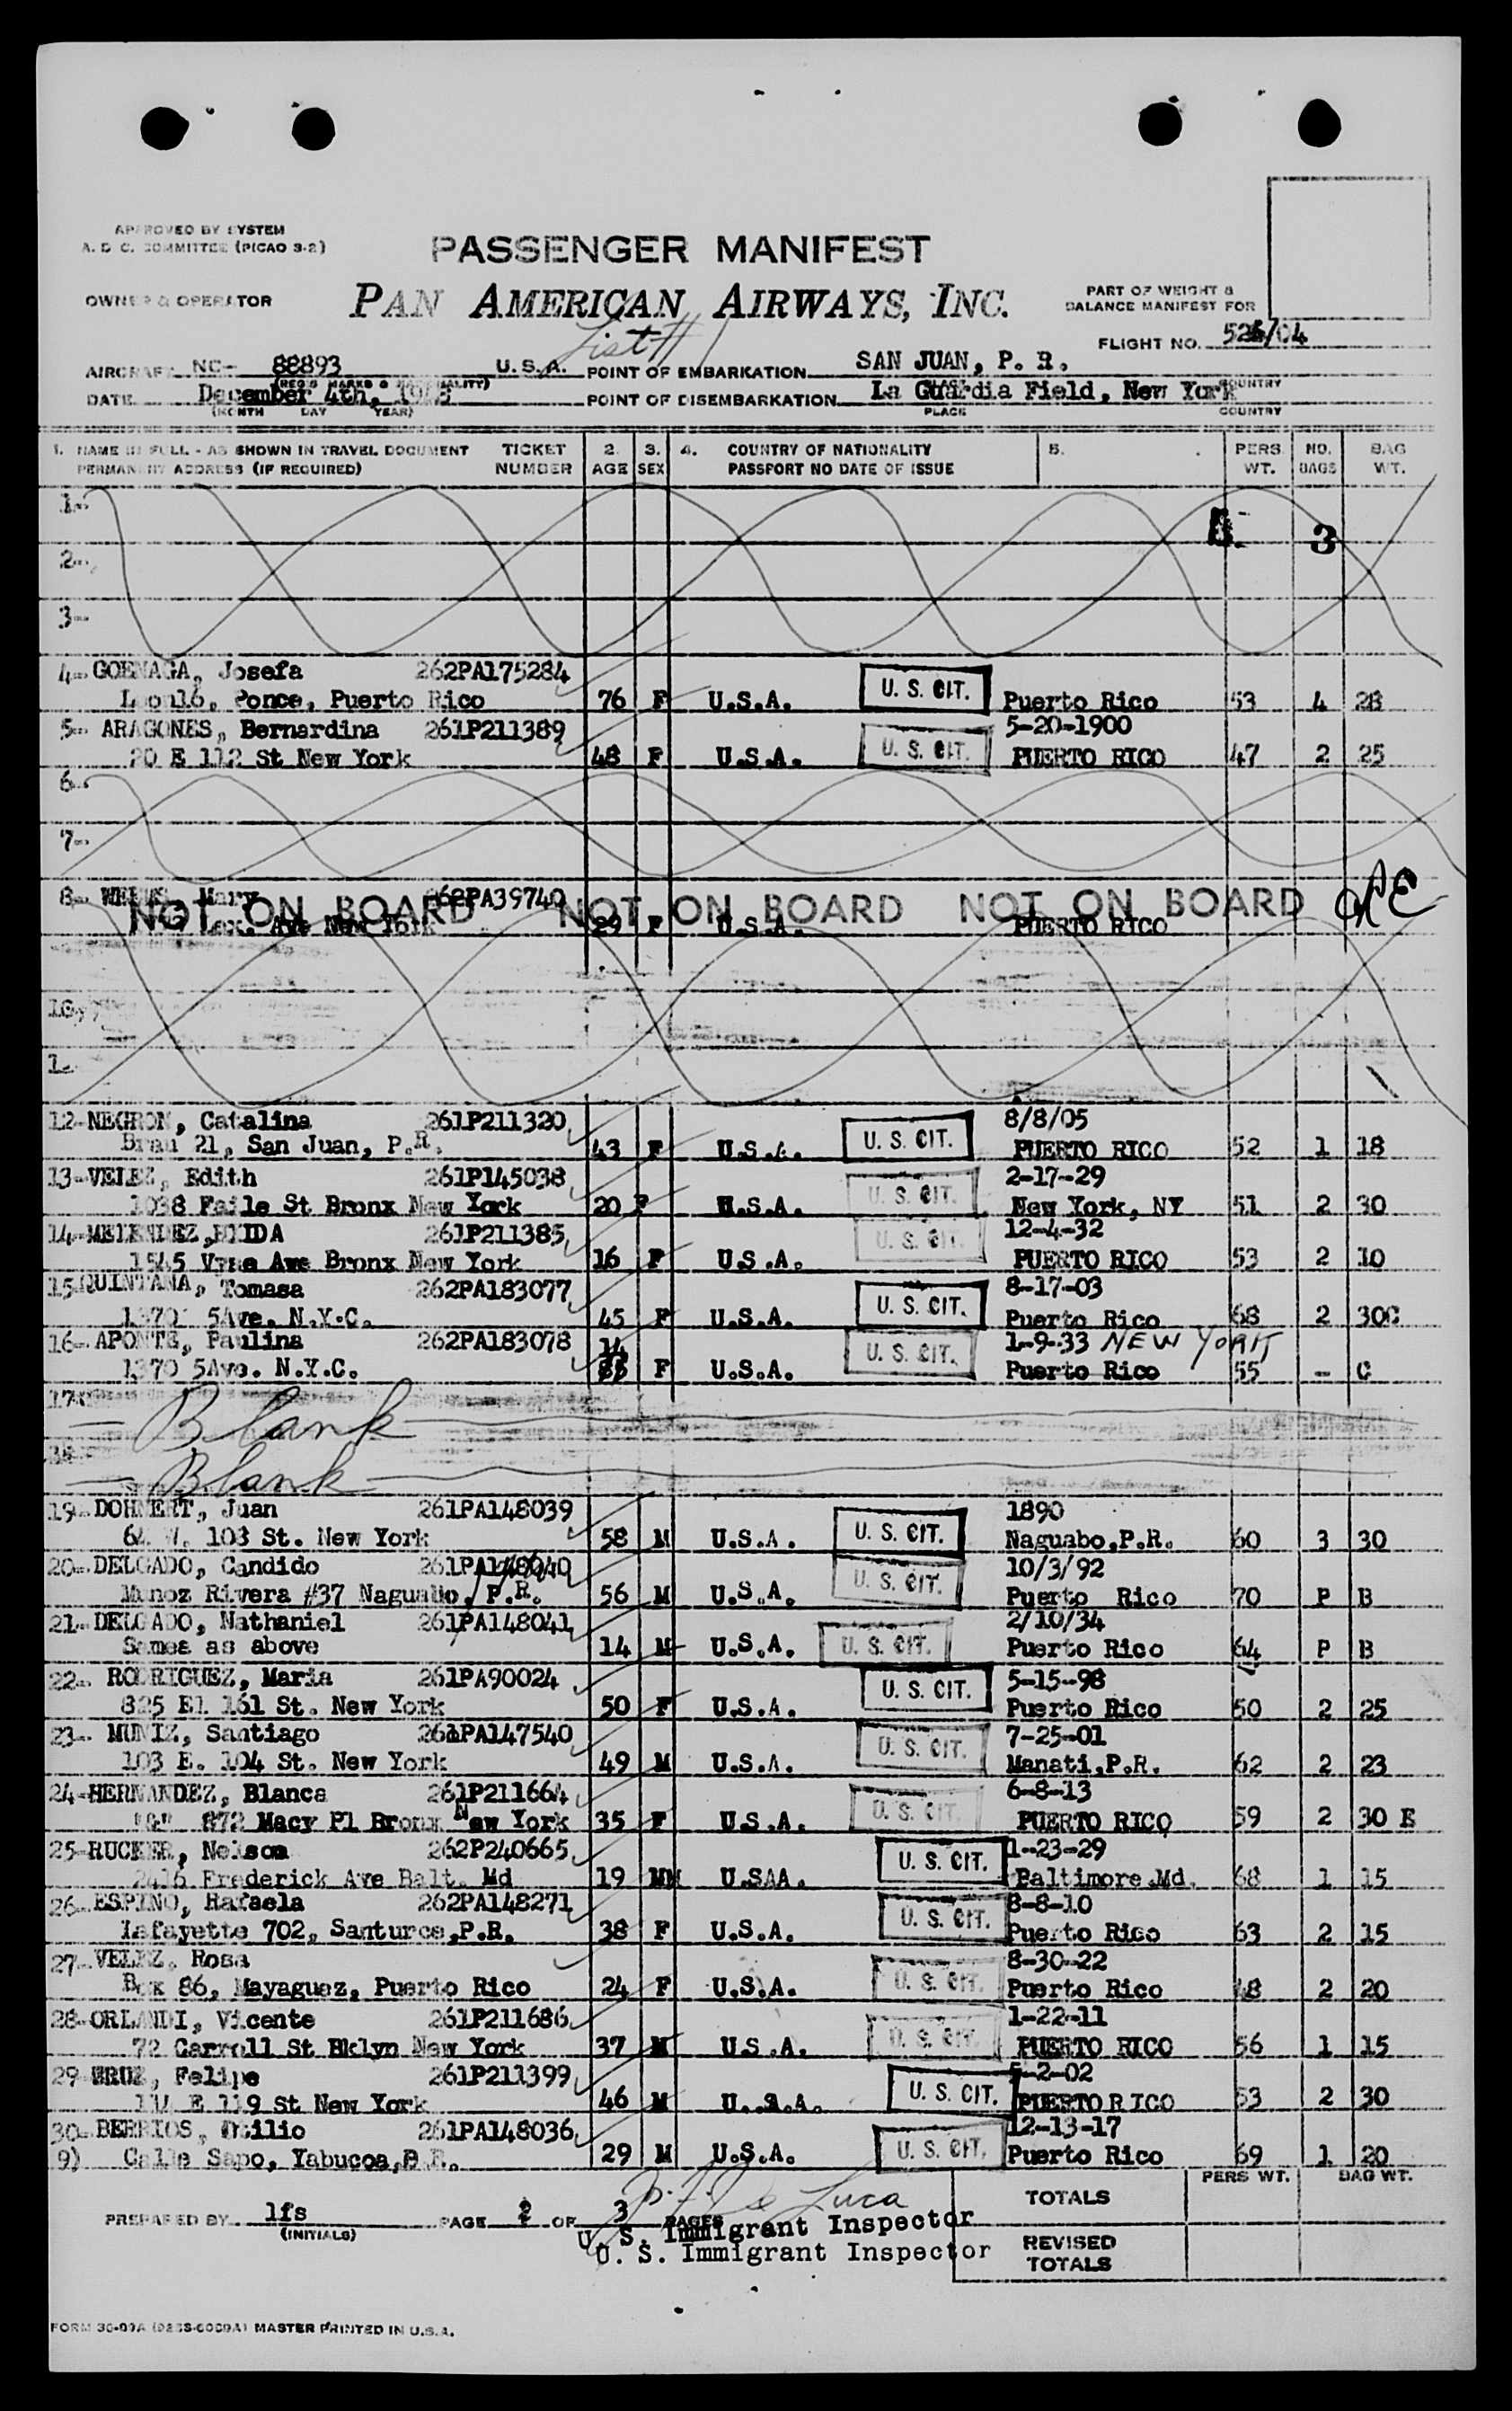 APPROVED BY SYSTEM
A. D C. COMMITTEE (PICAO 3-2)
PASSENGER MANIFEST
OWNER & OPERATOR
PAN AMERICAN AIRWAYS, INC.
PART OF WEIGHT &
BALANCE MANIFEST FOR
List #1
FLIGHT NO. /04
AIRCRAFT NC- 88893 U.S.A. POINT OF EMBARKATION SAN JUAN, P. R.
(REG'S MARKS & NATIONALITY) COUNTRY
DATE December 4th, POINT OF DISEMBARKATION La Guardia Field, New York
(MONTH DAY YEAR) PLACE COUNTRY
1. NAME IN FULL - AS SHOWN IN TRAVEL DOCUMENT TICKET 2. 3. 4. COUNTRY OF NATIONALITY 5. PERS. NO. BAG
PERMANENT ADDRESS (IF REQUIRED) NUMBER AGE SEX PASSPORT NO DATE OF ISSUE WT. BAGS WT.
1-
3
2-
3-
4- GOENAGA, Josefa 262PA175284
Leon16, Ponce, Puerto Rico 76 F U.S.A. U. S. CIT. Puerto Rico 53 4 28
5- ARAGONES, Bernardina 261P211389 5-20-1900
20 E 112 St New York 48 F U.S.A. U. S. CIT. PUERTO RICO 47 2 25
6-
7-
8- Mary 262PA39740
NOT ON BOARD NOT ON BOARD NOT ON BOARD
Lex. Ave New York 29 F U.S.A. PUERTO RICO
10
12-NEGRON, Catalina 261P211320 8/8/05
Brau 21, San Juan, P.R. 43 F U.S.A. U. S. CIT. PUERTO RICO 52 1 18
13-VELEZ, Edith 261P145038 2-17-29
1038 Faile St Bronx New York 20 F U.S.A. U. S. CIT. New York, NY 51 2 30
14-MELENDEZ, 261P211385 12-4-32
1545 Vyse Ave Bronx New York 16 F U.S.A. U. S. CIT. PUERTO RICO 53 2 10
15QUINTANA, Tomasa 262PA183077 8-17-03
1370 5Ave. N.Y.C. 45 F U.S.A. U. S. CIT. Puerto Rico 68 2 30C
16- APONTE, Paulina 262PA183078 14 1-9-33 NEW YORK
1370 5Ave. N.Y.C. F U.S.A. U. S. CIT. Puerto Rico 55 - C
17-
Blank
Blank
19-DOHNERT, Juan 261PA148039 1890
64 W. 103 St. New York 58 M U.S.A. U. S. CIT. Naguabo,P.R. 60 3 30
20-DELGADO, Candido 261PA148040 10/3/92
Munoz Rivera #37 Naguabo, P.R. 56 M U.S.A. U. S. CIT. Puerto Rico 70 P B
21-DELGADO, Nathaniel 261PA148041 2/10/34
Samea as above 14 M U.S.A. U. S. CIT. Puerto Rico 64 P B
22- RODRIGUEZ, Maria 261PA90024 5-15-98
825 El 161 St. New York 50 F U.S.A. U. S. CIT. Puerto Rico 50 2 25
23- MUNIZ, Santiago PA147540 7-25-01
103 E. 104 St. New York 49 M U.S.A. U. S. CIT. Manati,P.R. 62 2 23
24-HERNANDEZ, Blanca 261P211664 6-8-13
872 Macy Pl Bronx New York 35 F U.S.A. U. S. CIT. PUERTO RICO 59 2 30 E
25-RUCKER, Nelson 262P240665 1-23-29
2416 Frederick Ave Balt. Md 19 MM U.SAA. U. S. CIT. Baltimore.Md. 68 1 15
26-ESPINO, Rafaela 262PA148271 8-8-10
Lafayette 702, Santurce,P.R. 38 F U.S.A. U. S. CIT. Puerto Rico 63 2 15
27-VELEZ, Rosa 8-30-22
Box 86, Mayaguez, Puerto Rico 24 F U.S.A. U. S. CIT. Puerto Rico 48 2 20
28-ORLANDI, Vicente 261P211686 1-22-11
72 Carroll St Bklyn New York 37 M U.S.A. U. S. CIT. PUERTO RICO 56 1 15
29 Felipe 261P211399 5-2-02
114 E 119 St New York 46 M U..S.A. U. S. CIT. PUERTO RICO 53 2 30
30-BERRIOS, 261PA148036 12-13-17
9) Calle Sapo, Yabucoa,P.R. 29 M U.S.A. U. S. CIT. Puerto Rico 69 1 20
PERS WT. BAG WT.
De Luca
TOTALS
PREPARED BY lfs PAGE 2 OF 3 PAGES
(INITIALS)
U. S. Immigrant Inspector
U. S. Immigrant Inspector
REVISED
TOTALS
FORM MASTER PRINTED IN U.S.A.